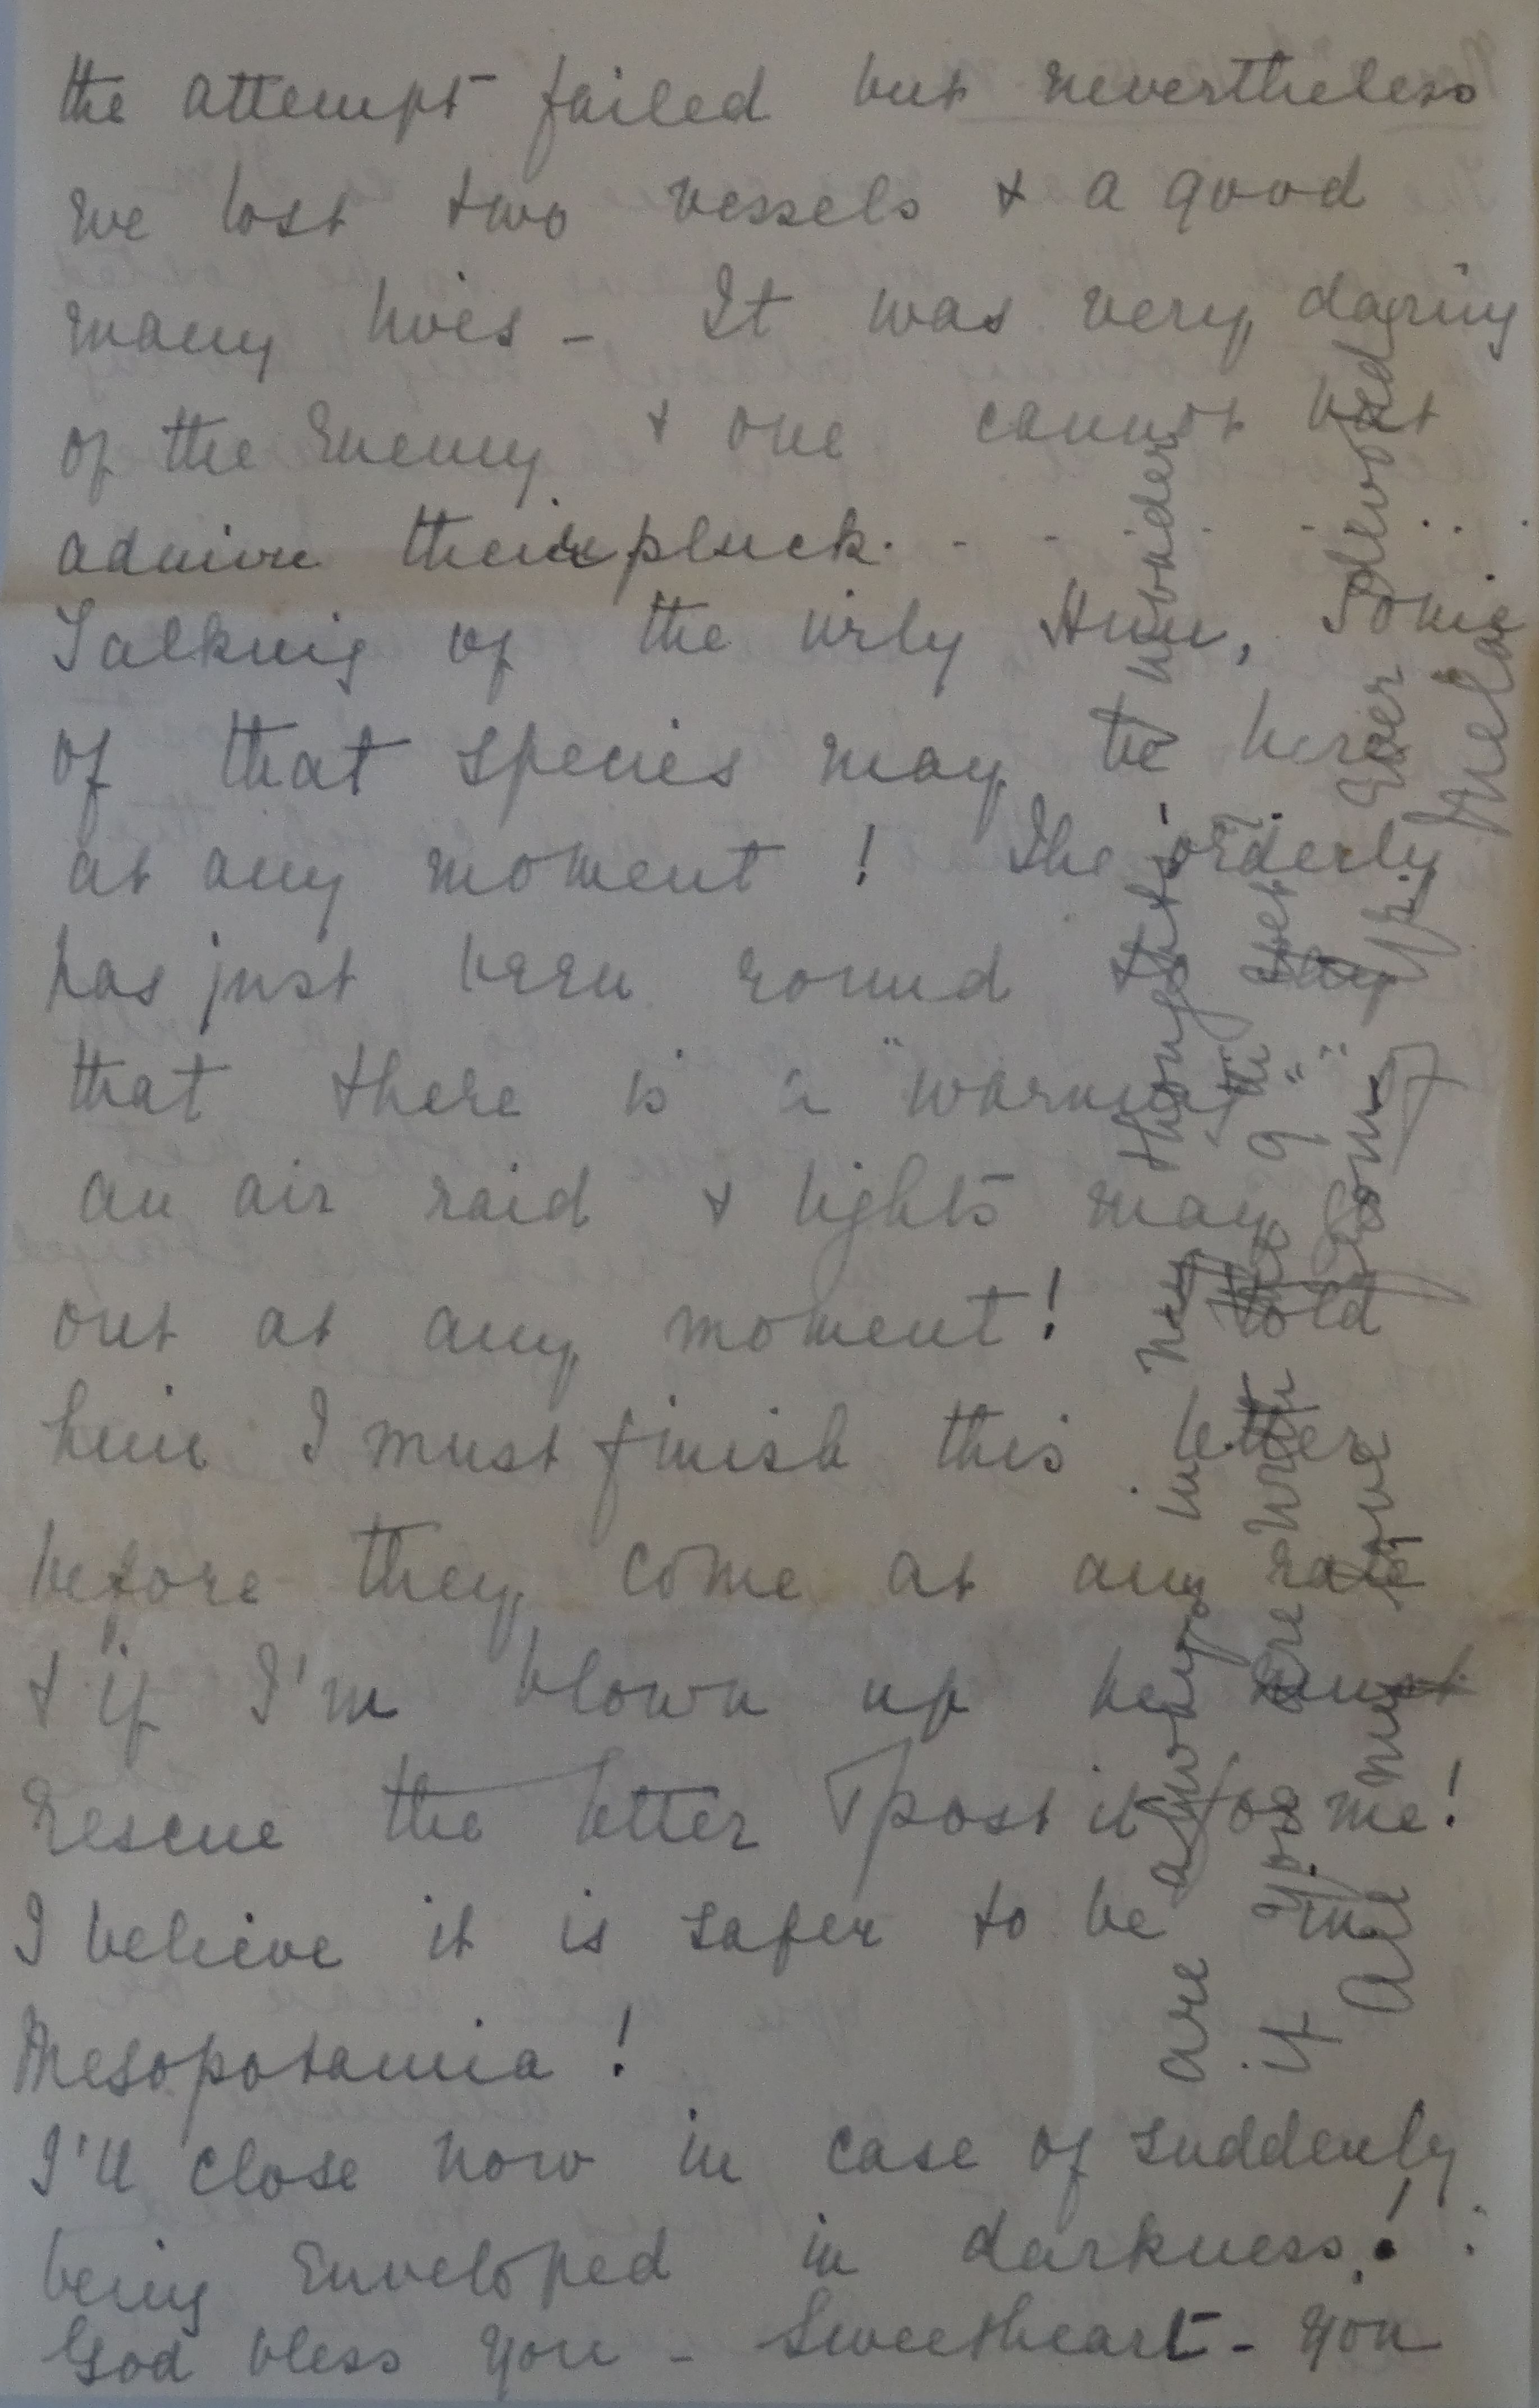 the attempt failed but nevertheless
we lost two vessels & a good
many lives - It was very daring
of the Enemy & one cannot but
admire their pluck. - - - - . . .
Talking of the wily Hun, some
of that species may be here
at any moment! The orderly
has just been round to say
that there is a "warning" of
an air raid & lights may go
out at any moment! I told
him I must finish this letter
before they come at any rate
& if I'm blown up he must
rescue the letter & post it for me!
I believe it is safer to be in
Mesopotamia!
I'll close now in case of suddenly
being Enveloped in darkness!
God bless you - Sweetheart - You
are always in my thoughts & I wonder
if you are with the
All my love Yr. Ever devoted
Mela